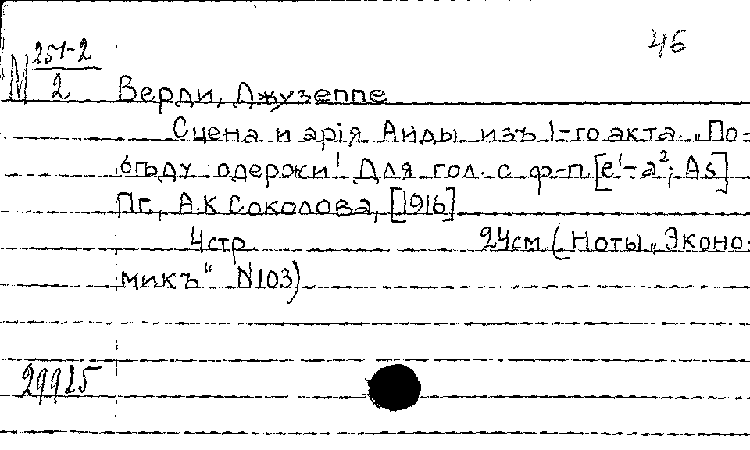 46
М 251-2
2
Верди, Джузеппе
Сцена и арія Аиды изъ 1-го акта „По-
бѣду одержи! Для гол. с ф-п. [e¹-a²; As]
Пг., А.К Соколова, [1916]
4стр 24см (Ноты „Эконо-
микъ" N103)
29915